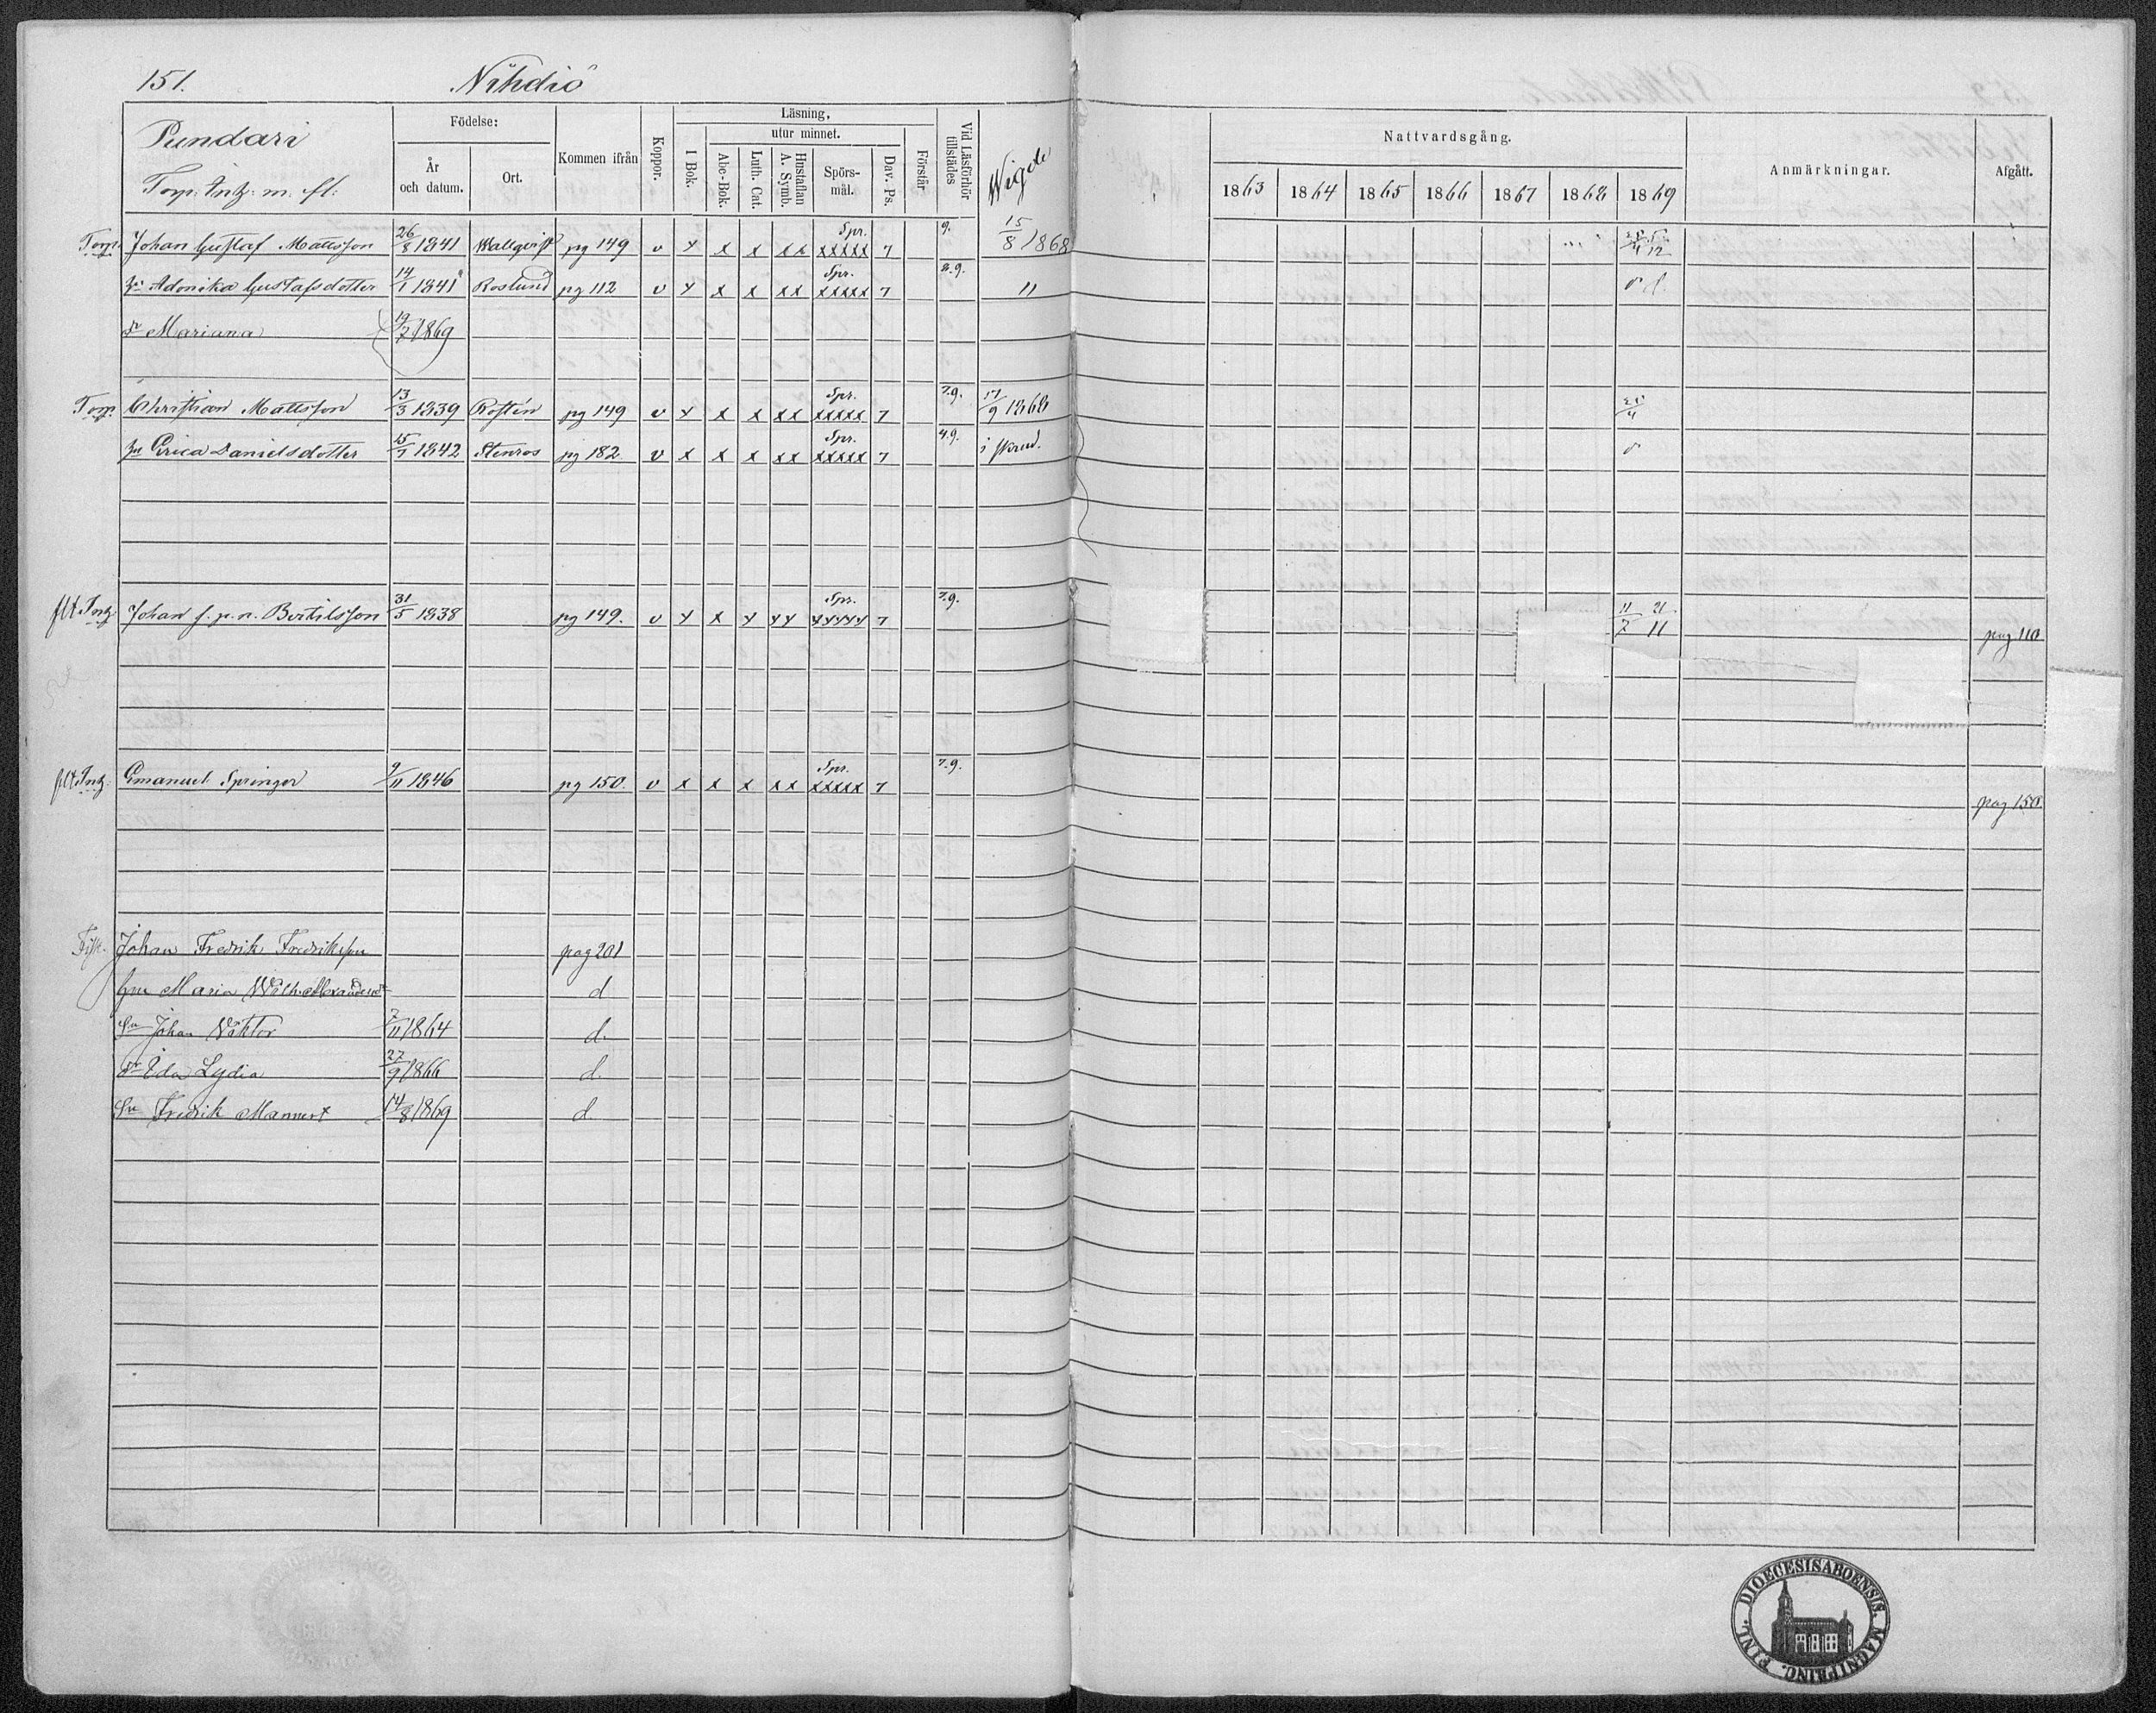 151. Nihdiö
Pundari
Torp. Intz: m. fl:
Födelse:
År och datum.
Ort.
Kommen ifrån
Koppor.
Läsning,
I Bok.
utur minnet.
Abc-Bok.
Luth. Cat.
Hustaflan A. Symb.
Spörsmål.
Dav. Ps.
Förstår
Vid Läsförhör tillstädes
Wigde
Nattvardsgång.
1863 1864 1865 1866 1867 1868 1869
Anmärkningar.
Afgått.
Torp. Johan Gustaf Mattsson 26/8 1841 Wallqvist pg 149 v x x x xx Spr. xxxxx 7 9. 15/8 1868
hu Adonika Gustafsdotter 14/1 1841 Roslund pg 112 v x x x xx Spr. xxxxx 7 8.9. "
dr Mariana 19/2 1869
Torp. Christian Mattsson 13/3 1839 Rostén pg 149 v x x x xx Spr. xxxxx 7 7.9. 1868
hu Erica Danielsdotter 1842 Stenros pg 182 v x x x xx Spr. xxxxx 7 4.9.
Intz. Johan f.p.n. Bertilsson 31/5 1838 pg 149. v x x x xx Spr. xxxxx 7 7.9. 11/7 21/11 pag 110
Intz. Emanuel Springer 9/11 1846 pg 150. v x x x xx Spr. xxxxx 7 7.9. pag 150.
Johan Fredrik Fredriksson pag 201
hu Maria Wilh. d
Sn Johan Viktor 7/11 1864 d.
dr Ida Lydia 27/9 1866 d.
Sn Fredrik 14/8 1869 d.
FINL. DIOECESIS ABOENSIS. MAGNI PRINC.